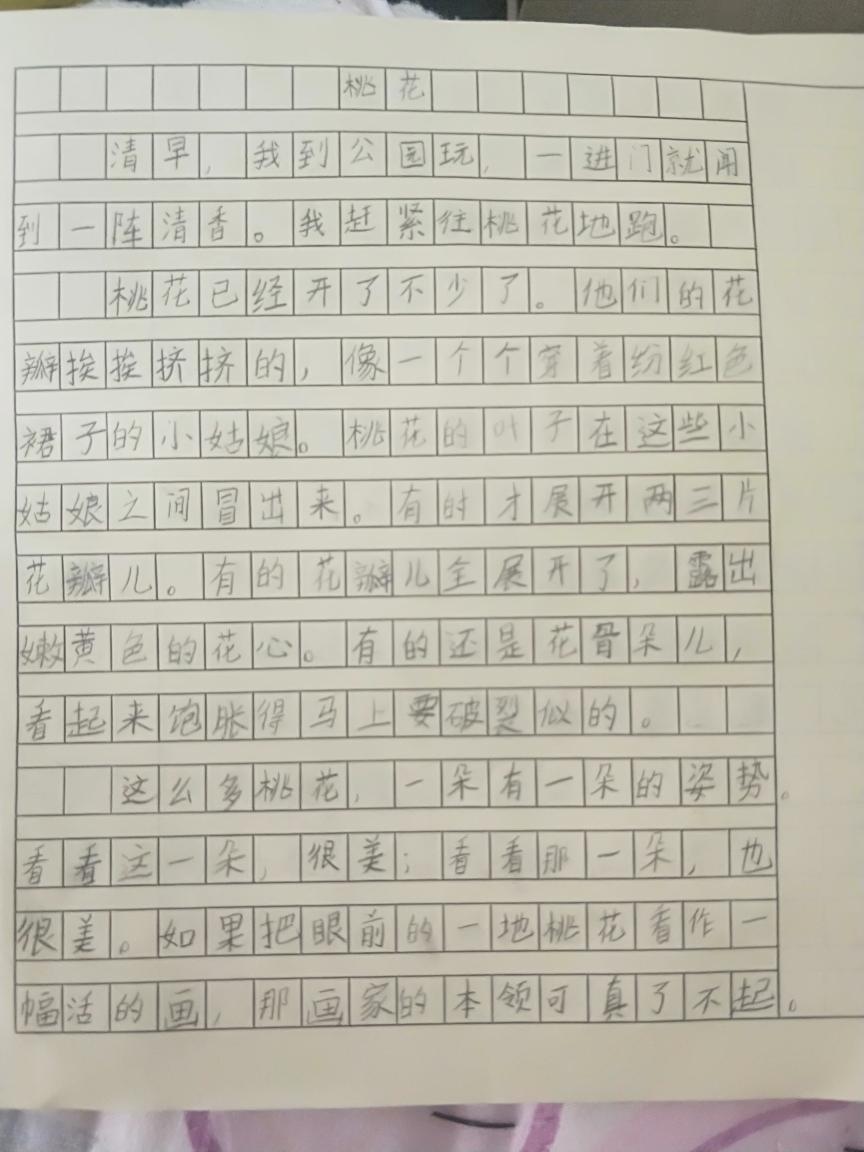 桃花
清早，我到公园玩，一进门就闻
到一阵清香。我赶紧往桃花地跑。
桃花已经开了不少了。他们的花
瓣挨挨挤挤的，像一个个穿着纷红色
裙子的小姑娘。桃花的叶子在这些小
姑娘之间冒出来。有的才展开两三片
花瓣儿。有的花瓣儿全展开了，露出
嫩黄色的花心。有的还是花骨朵儿，
看起来饱胀得马上要破裂似的。
这么多桃花，一朵有一朵的姿势。
看看这一朵，很美；看看那一朵，也
很美。如果把眼前的一地桃花看作一
幅活的画，那画家的本领可真了不起。